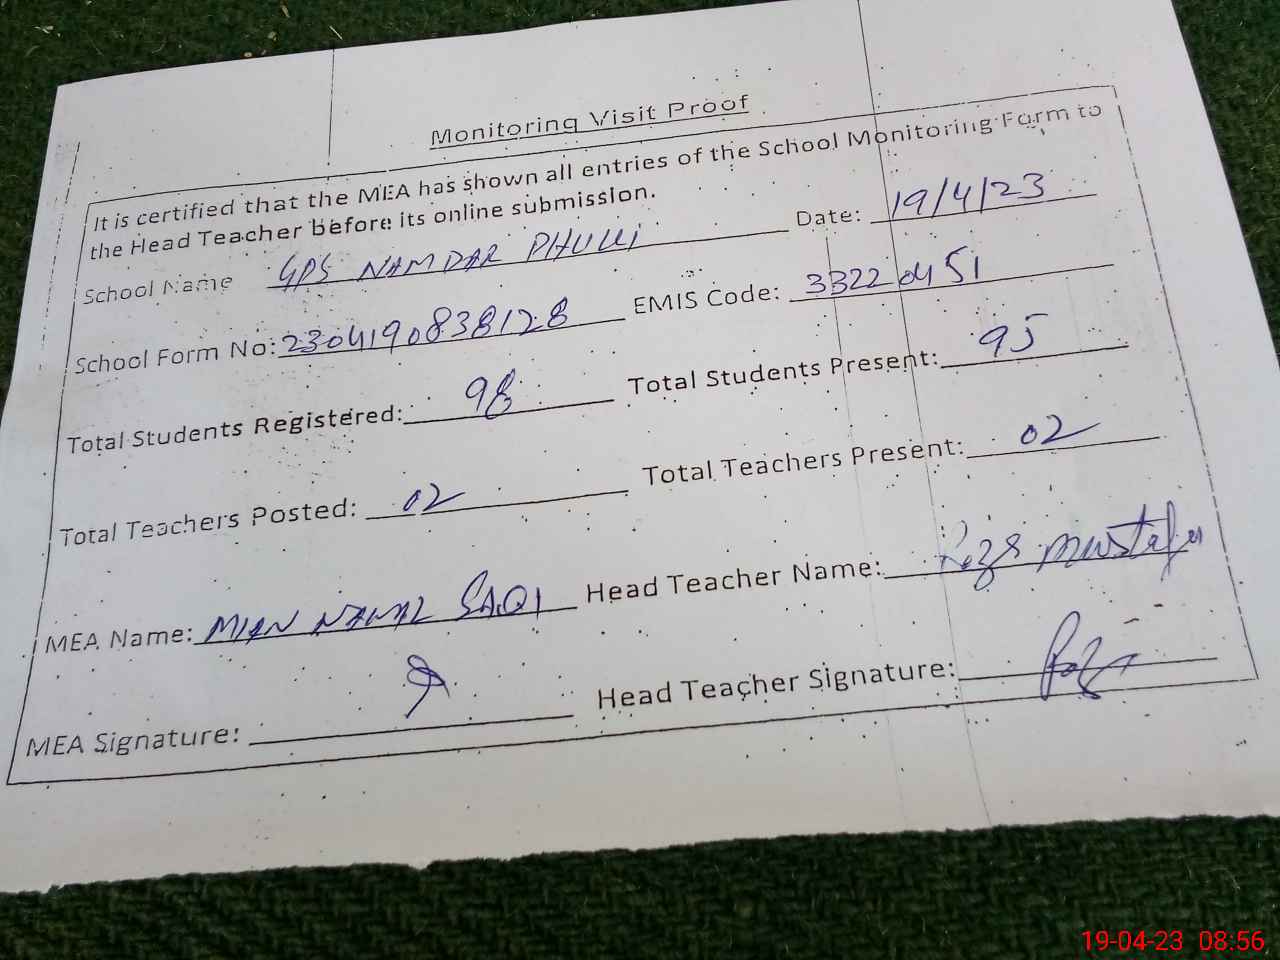 Monitoring Visit Proof
It is certified that the MEA has shown all entries of the School Monitoring Form to
the Head Teacher before its online submission.
School Name GPS NAMDAR PHULLI Date: 19/4/23
School Form No: 2304190838128 EMIS Code: 33220451
Total Students Registered: 98 Total Students Present: 95
Total Teachers Posted: 02 Total Teachers Present: 02
MEA Name: MIAN NAWAZ SAQI Head Teacher Name: Raza Mustafa
MEA Signature: Head Teacher Signature:
19-04-23 08:56